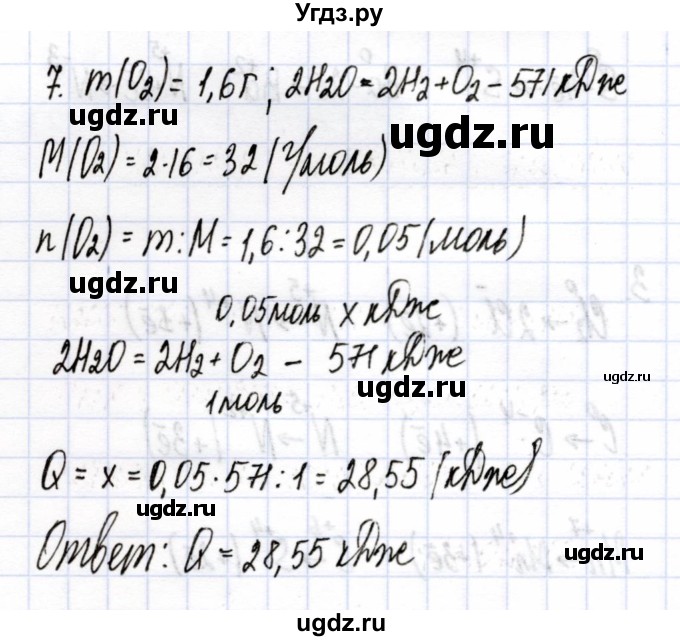 Угдз.ру
7. m(O₂) = 1,6г; 2H₂O = 2H₂ + O₂ – 571 кДж
ugdz.ru
M(O₂) = 2·16 = 32 (г/моль)
ugdz.ru
n(O₂) = m:M = 1,6:32 = 0,05 (моль)
ugdz.ru
0,05моль x кДж
2H₂O = 2H₂ + O₂ – 571 кДж
ugdz.ru ugdz.ru
1моль
Q = x = 0,05·571:1 = 28,55 (кДж)
ugdz.ru
Ответ: Q = 28,55 кДж
ugdz.ru
ugdz.ru